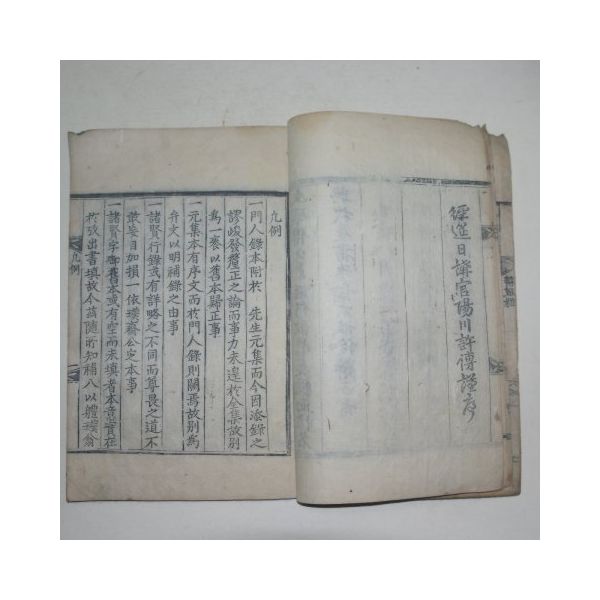 經筵日講官陽川許傳謹序
凡例
一門人錄本附於 先生元集而今因添錄之
謬峻發釐正之論而事力未遑於全集故別
爲一卷以舊本歸正事
一元集本有序文而於門人錄則闕焉故別爲
弁文以明補錄之由事
一諸賢行錄或有詳略之不同而尊畏之道不
敢妄自加損一依璞齋公定本事
一諸賢字啣舊本或有空而未填者本意實在
於攷出書填故今茲隨所知補入以軆璞翁
凡例